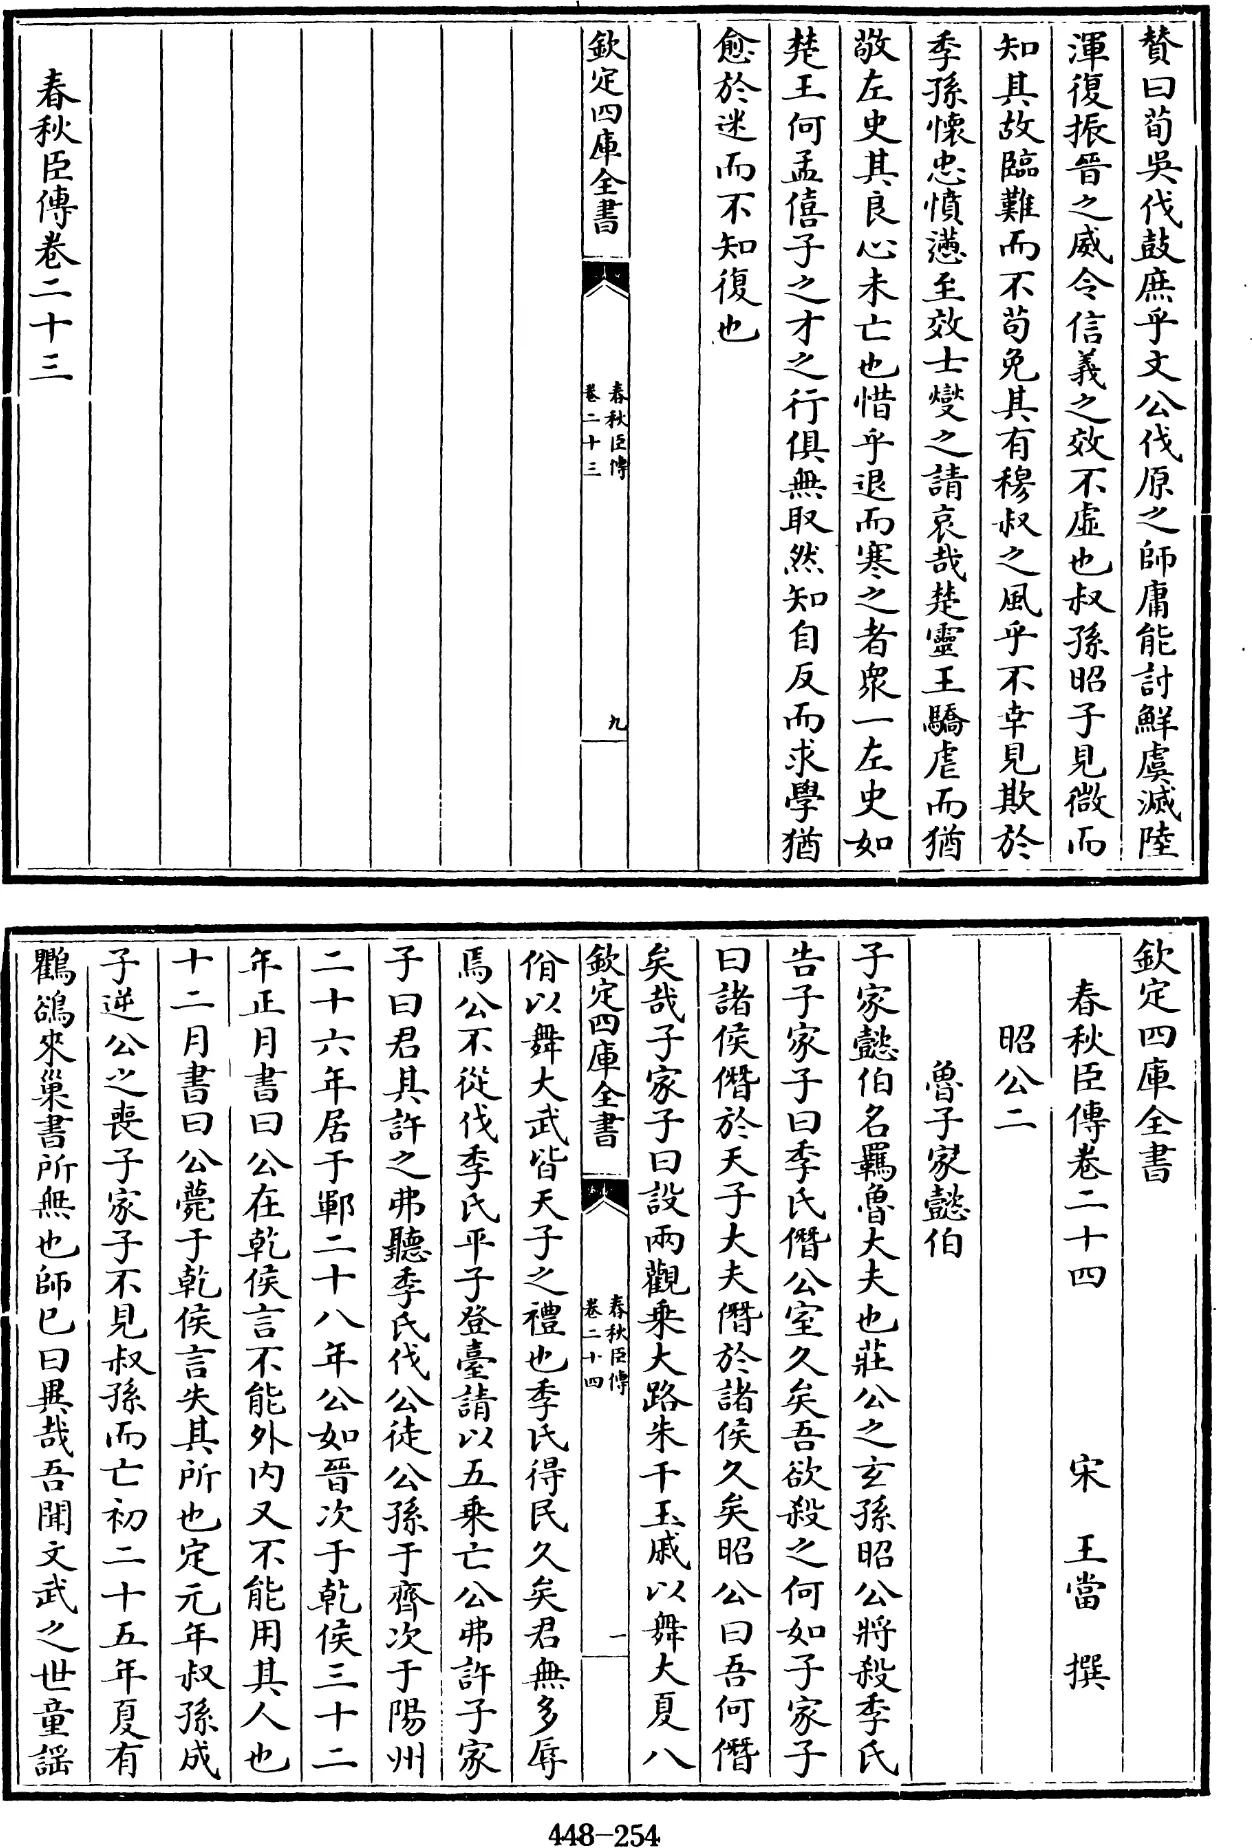 贊曰荀吳伐鼓庶乎文公伐原之師庸能討鮮虞滅陸
渾復振晉之威令信義之效不虛也叔孫昭子見微而
知其故臨難而不苟免其有穆叔之風乎不幸見欺於
季孫懷忠憤懣至效士燮之請哀哉楚靈王驕虐而猶
敬左史其良心未亡也惜乎退而寒之者衆一左史如
楚王何孟僖子之才之行俱無取然知自反而求學猶
愈於迷而不知復也
欽定四庫全書
春秋臣傳
卷二十三
九
春秋臣傳卷二十三
欽定四庫全書
春秋臣傳卷二十四
宋 王當 撰
昭公二
魯子家懿伯
子家懿伯名羈魯大夫也莊公之玄孫昭公將殺季氏
告子家子曰季氏僭公室久矣吾欲殺之何如子家子
曰諸侯僭於天子大夫僭於諸侯久矣昭公曰吾何僭
矣哉子家子曰設兩觀乘大路朱干玉戚以舞大夏八
欽定四庫全書
春秋臣傳
卷二十四
一
佾以舞大武皆天子之禮也季氏得民久矣君無多辱
焉公不從伐季氏平子登臺請以五乘亡公弗許子家
子曰君其許之弗聽季氏伐公徒公孫于齊次于陽州
二十六年居于鄆二十八年公如晉次于乾侯三十二
年正月書曰公在乾侯言不能外内又不能用其人也
十二月書曰公薨于乾侯言失其所也定元年叔孫成
子逆公之喪子家子不見叔孫而亡初二十五年夏有
鸜鵒來巢書所無也師已曰異哉吾聞文武之世童謡
448-254